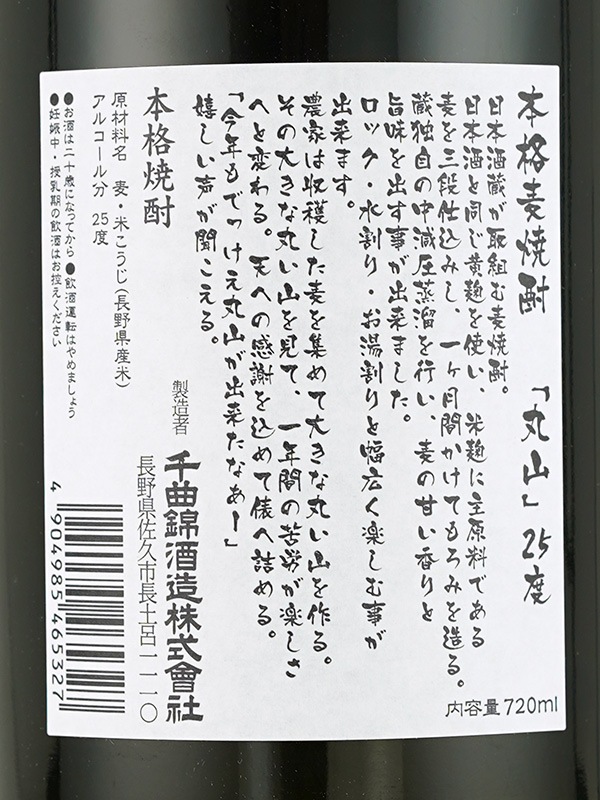 本格麦焼酎 「丸山」25度
日本酒蔵が取組む麦焼酎。
日本酒と同じ黄麹を使い、米麹に主原料である
麦を三段仕込みし、一ヶ月間かけてもろみを造る。
蔵独自の中減圧蒸溜を行い、麦の甘い香りと
旨味を出す事が出来ました。
ロック・水割り・お湯割りと幅広く楽しむ事が
出来ます。
農家は収穫した麦を集めて大きな丸い山を作る。
その大きな丸い山を見て、一年間の苦労が楽しさ
へと変わる。天への感謝を込めて俵へ詰める。
「今年もでっけえ丸山が出来たなあー」
嬉しい声が聞こえる。
本格焼酎
原材料名 麦・米こうじ(長野県産米)
アルコール分 25度
●お酒は二十歳になってから ●飲酒運転はやめましょう
●妊娠中・授乳期の飲酒はお控えください
製造者 千曲錦酒造株式會社
長野県佐久市長土呂一一一〇
4 904985 465327
内容量720ml